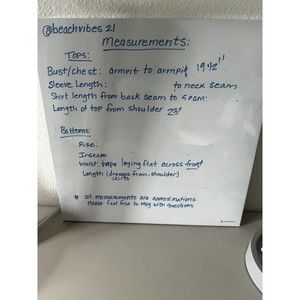 @beachvibes 21
Measurements:
Tops:
Bust/chest: armpit to armpit 19 1/2"
Sleeve Length: to neck seam
Shirt length from back seam to seam:
Length of top from shoulder 23"
Bottoms:
Rise:
Inseam
Waist: tape laying flat across front
Length (dresses from shoulder)
skirts
* all measurements are approximations
Please feel free to msg with questions